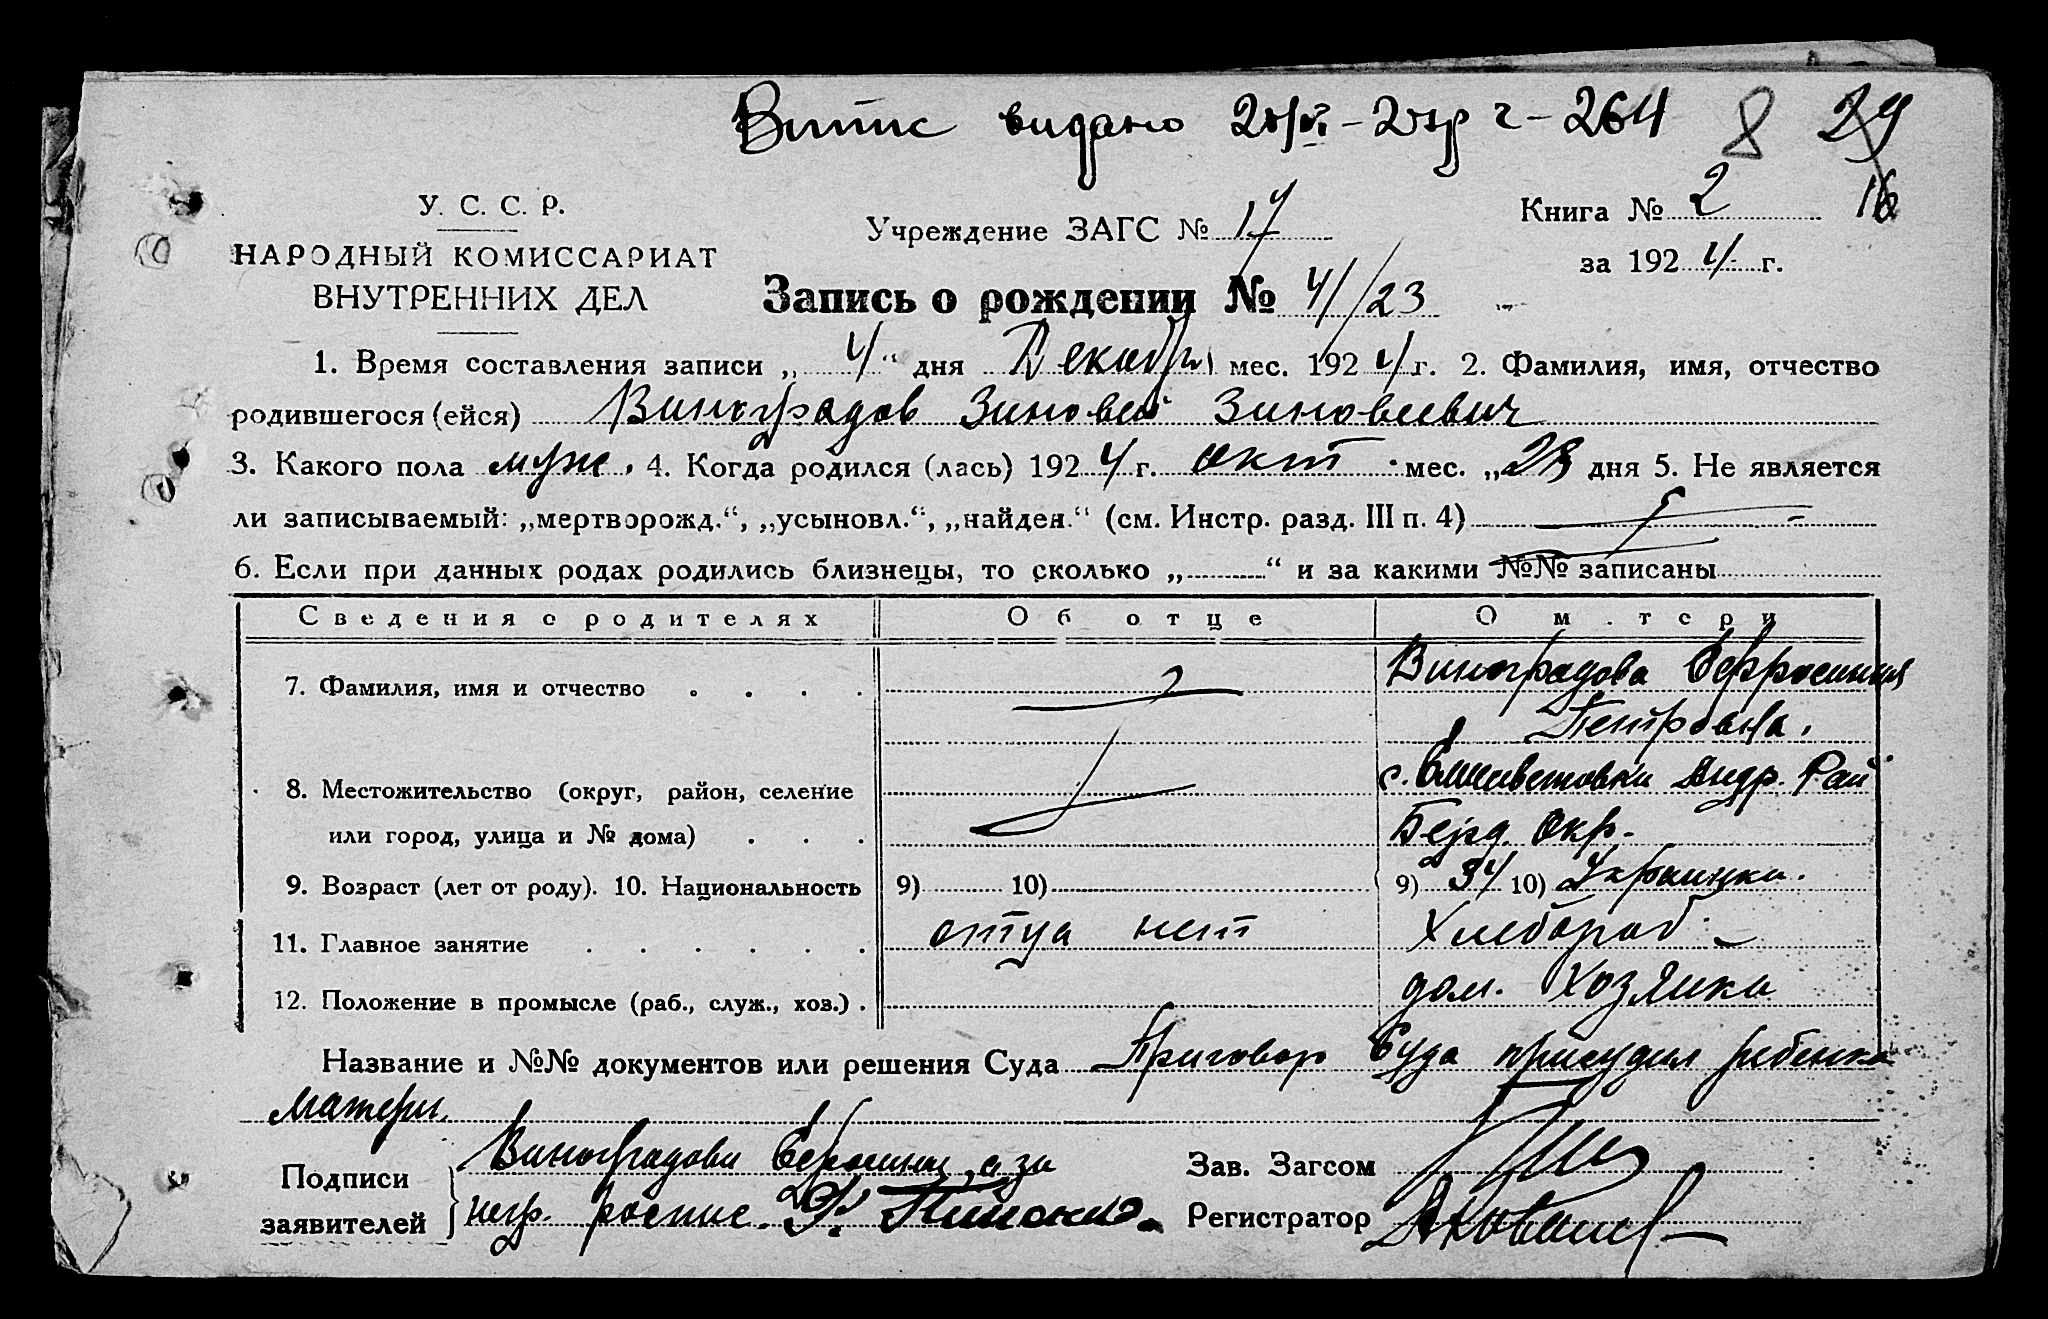 Витис видано 264 8 29
У. С. С. Р.
НАРОДНЫЙ КОМИССАРИАТ
ВНУТРЕННИХ ДЕЛ
Учреждение ЗАГС № 17
Книга № 2 16
за 192 4 г.
Запись о рождении № 4/23
1. Время составления записи „ 4 “ дня Декабр мес. 192 4 г. 2. Фамилия, имя, отчество
родившегося (ейся) Виноградов Зиновей Зиновеевич
3. Какого пола муж. 4. Когда родился (лась) 192 4 г. окт мес. „ 28 дня 5. Не является
ли записываемый: „мертворожд.“, „усыновл.“, „найден.“ (см. Инстр. разд. III п. 4)
6. Если при данных родах родились близнецы, то сколько „ “ и за какими №№ записаны
Сведения о родителях Об отце О м.тери
7. Фамилия, имя и отчество Виноградова Ефросиния
Петровна.
8. Местожительство (округ, район, селение с. Елисаветовки Андр. Рай
или город, улица и № дома) Берд. Окр.
9. Возраст (лет от роду). 10. Национальность 9) 10) 9) 34 10) Украинка.
11. Главное занятие отца нет Хлебороб
12. Положение в промысле (раб., служ., хоз.) дом. Хозяйка
Название и №№ документов или решения Суда Приговор Суда присудил ребенка
матери.
Подписи заявителей Виноградова Ефросиния, а за
негр. роспис.
Зав. Загсом
Регистратор